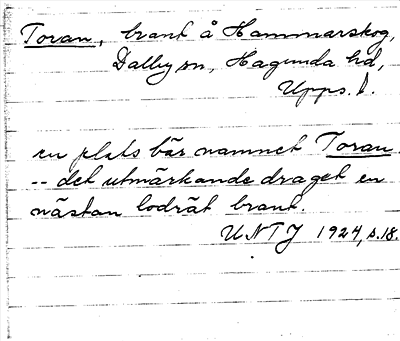 Toran, brant å Hammarskog,
Dalby sn, Hagunda hd,
Upps. l.
en plats bär namnet Toran
-- det utmärkande draget en
nästan lodrät brant.
UNTJ 1924, s.18.